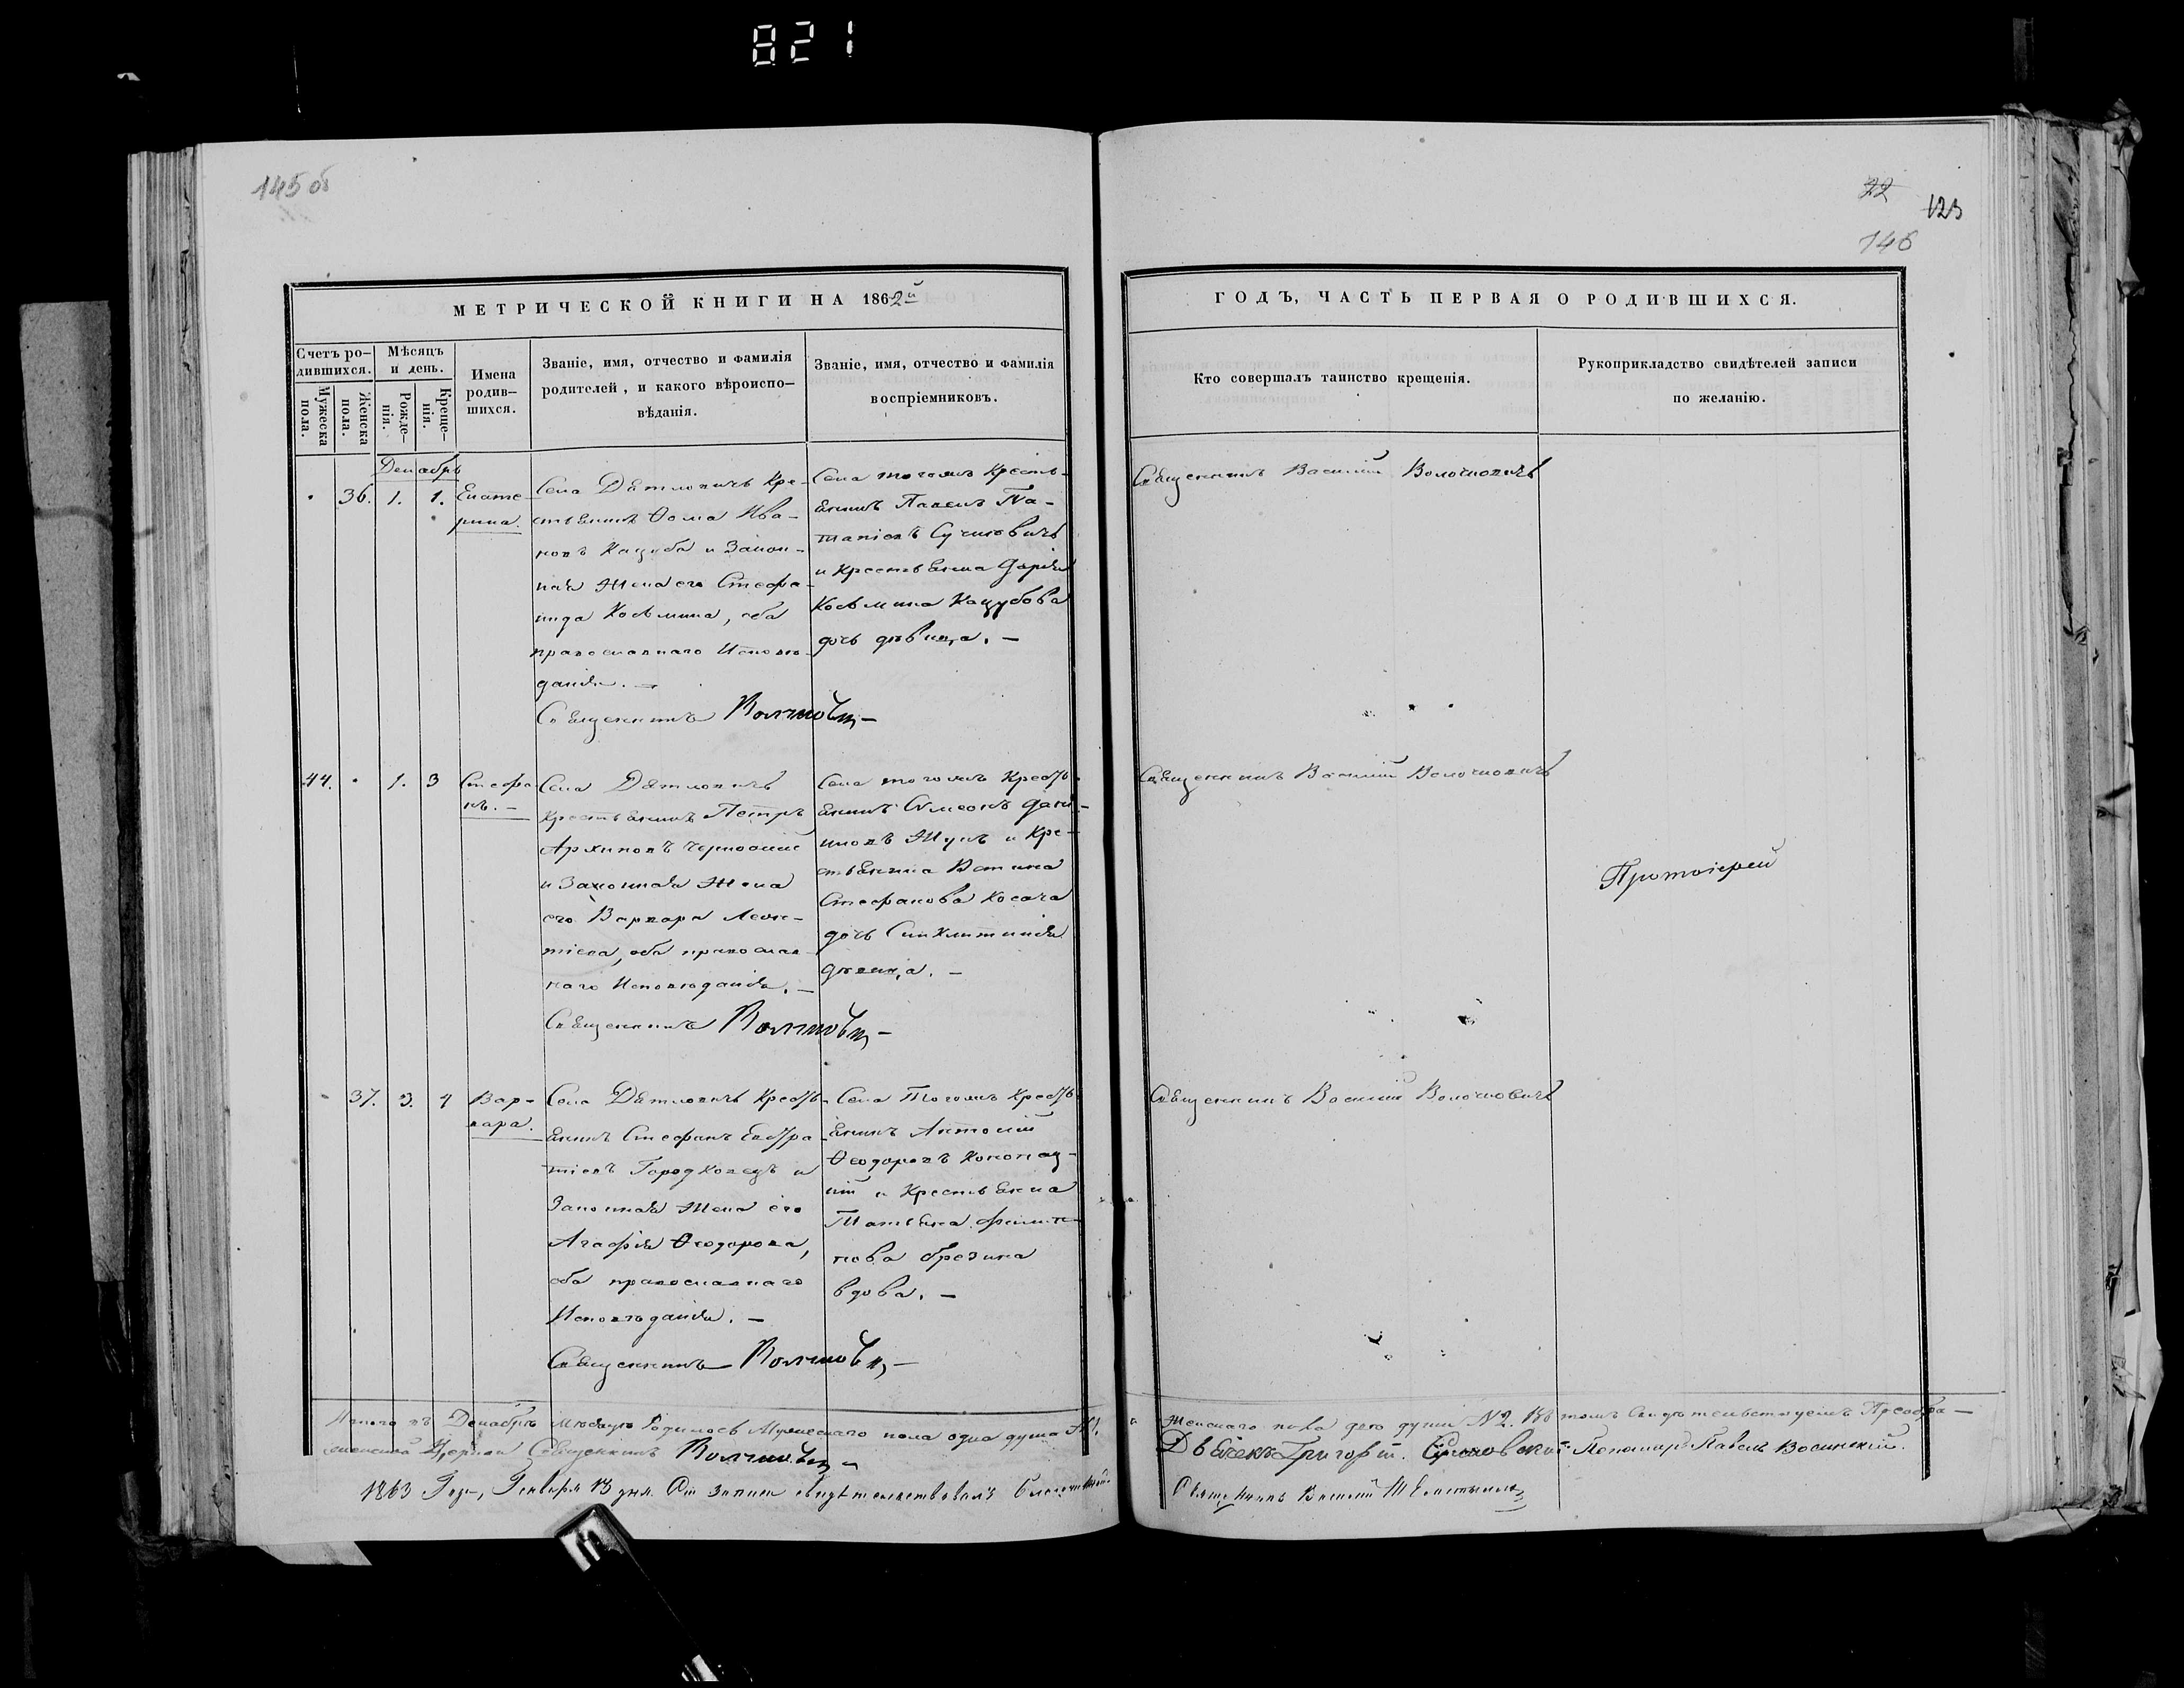 821
145 об
22
123
146
МЕТРИЧЕСКОЙ КНИГИ НА 1862й
ГОДЪ, ЧАСТЬ ПЕРВАЯ О РОДИВШИХСЯ.
Счетъ ро-
дившихся.
Мужеска
пола.
Женска
пола.
Мѣсяцъ
и день.
Рожде-
нія.
Креще-
нія.
Имена
родив-
шихся.
Званіе, имя, отчество и фамилія
родителей, и какого вѣроиспо-
вѣданія.
Званіе, имя, отчество и фамилія
воспріемниковъ.
Кто совершалъ таинство крещенія.
Рукоприкладство свидѣтелей записи
по желанію.
Декабрь
36. 1. 1.
Екате-
рина.
Села Дѣтловичъ Кре-
стьянинъ Ѳома Ива-
новъ Кацуба и Закон-
ная Жена его Стефа-
нида Косьмина, оба
православнаго Исповѣ-
данія. —
Священникъ
Села тогожъ Кресть-
янинъ Павелъ
и Крестьянка Дарія
Косьмина Кацубова
дочь дѣвица. —
Священникъ Василій
44. 1. 3
Стефа-
нъ. —
Села Дѣтловичъ
Крестьянинъ Петръ
Архиповъ
и Законная Жена
его Варвара Леон-
тіева, оба православ-
наго Исповѣданія. —
Священникъ
Села тогожъ Кресть-
янинъ Симеонъ Дани-
иловъ Жукъ и Кре-
стьянка
Стефанова Косача
дочь Синклитикія
дѣвица. —
Священникъ Василій
Протоіерей
37. 3. 4
Вар-
вара.
Села Дѣтловичъ Кресть-
янинъ Стефанъ Евстра-
тіевъ и
Законная Жена его
Агафія Ѳеодорова,
оба православнаго
Исповѣданія. —
Священникъ
Села Тогожъ Кресть-
янинъ Антоній
Ѳеодоровъ
и Крестьянка
Татьяна Филип-
пова
вдова. —
Священникъ Василій
Итого въ Декабрѣ мѣсяцѣ Родилось Мужескаго пола одна душа №1.
и Женскаго пола двѣ души №2. Въ томъ Свидѣтельствуемъ Преобра-
женской Церкви Священникъ
Дьячекъ Григорій Пономарь Павелъ
1863 Года, Генваря 13 дня. Сіи записи свидѣтельствовалъ Благочинный
Священникъ Василій